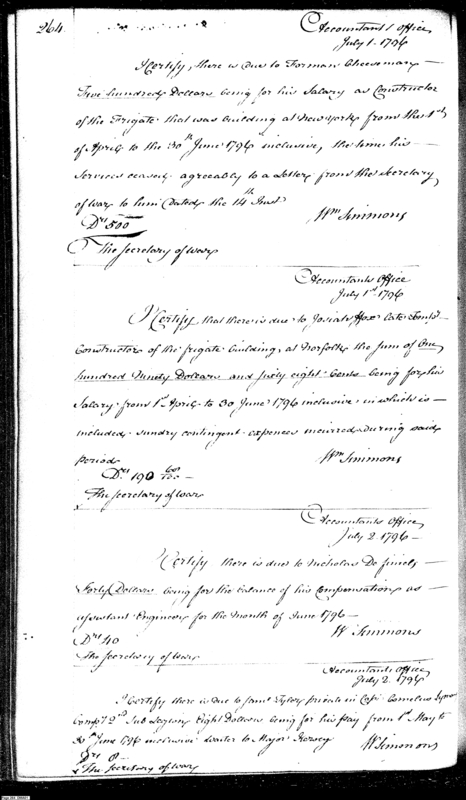 264.
Accountants Office
July 1. 1796
I Certify, there is due to Forman Cheeseman
Five hundred Dollars being for his Salary as Constructor
of the Frigate that was building at New York from the 1st
of April to the 30th June 1796 inclusive, the time his
Services ceased agreeably to a Letter from the Secretary
of War to him dated the 14th Inst.
Wm Simmons
Drs 500
The Secretary of War
Accountants Office
July 1st 1796
I Certify that there is due to Josiah Fox late
Constructor of the frigate building, at Norfolk the sum of One
hundred Ninety Dollars and sixty eight Cents being for his
Salary from 1st April to 30 June 1796 inclusive in which is
included sundry contingent expences incurred during said
period
Wm Simmons
Drs 190 68/100
The Secretary of War
Accountants Office
July 2. 1796
I Certify there is due to Nicholas De Finiels
Forty Dollars being for the balance of his Compensation as
assistant Engineer for the Month of June 1796
W Simmons
Drs 40
The Secretary of War
Accountants Office
July 2. 1796
I Certify there is due to Saml Tyler private in Capt Cornelius
Comps 2nd Sub Legion Eight Dollars being for his pay from 1st May to
30th June 1796 inclusive waiter to Major Kersey
W Simmons
Drs 8
The Secretary of War